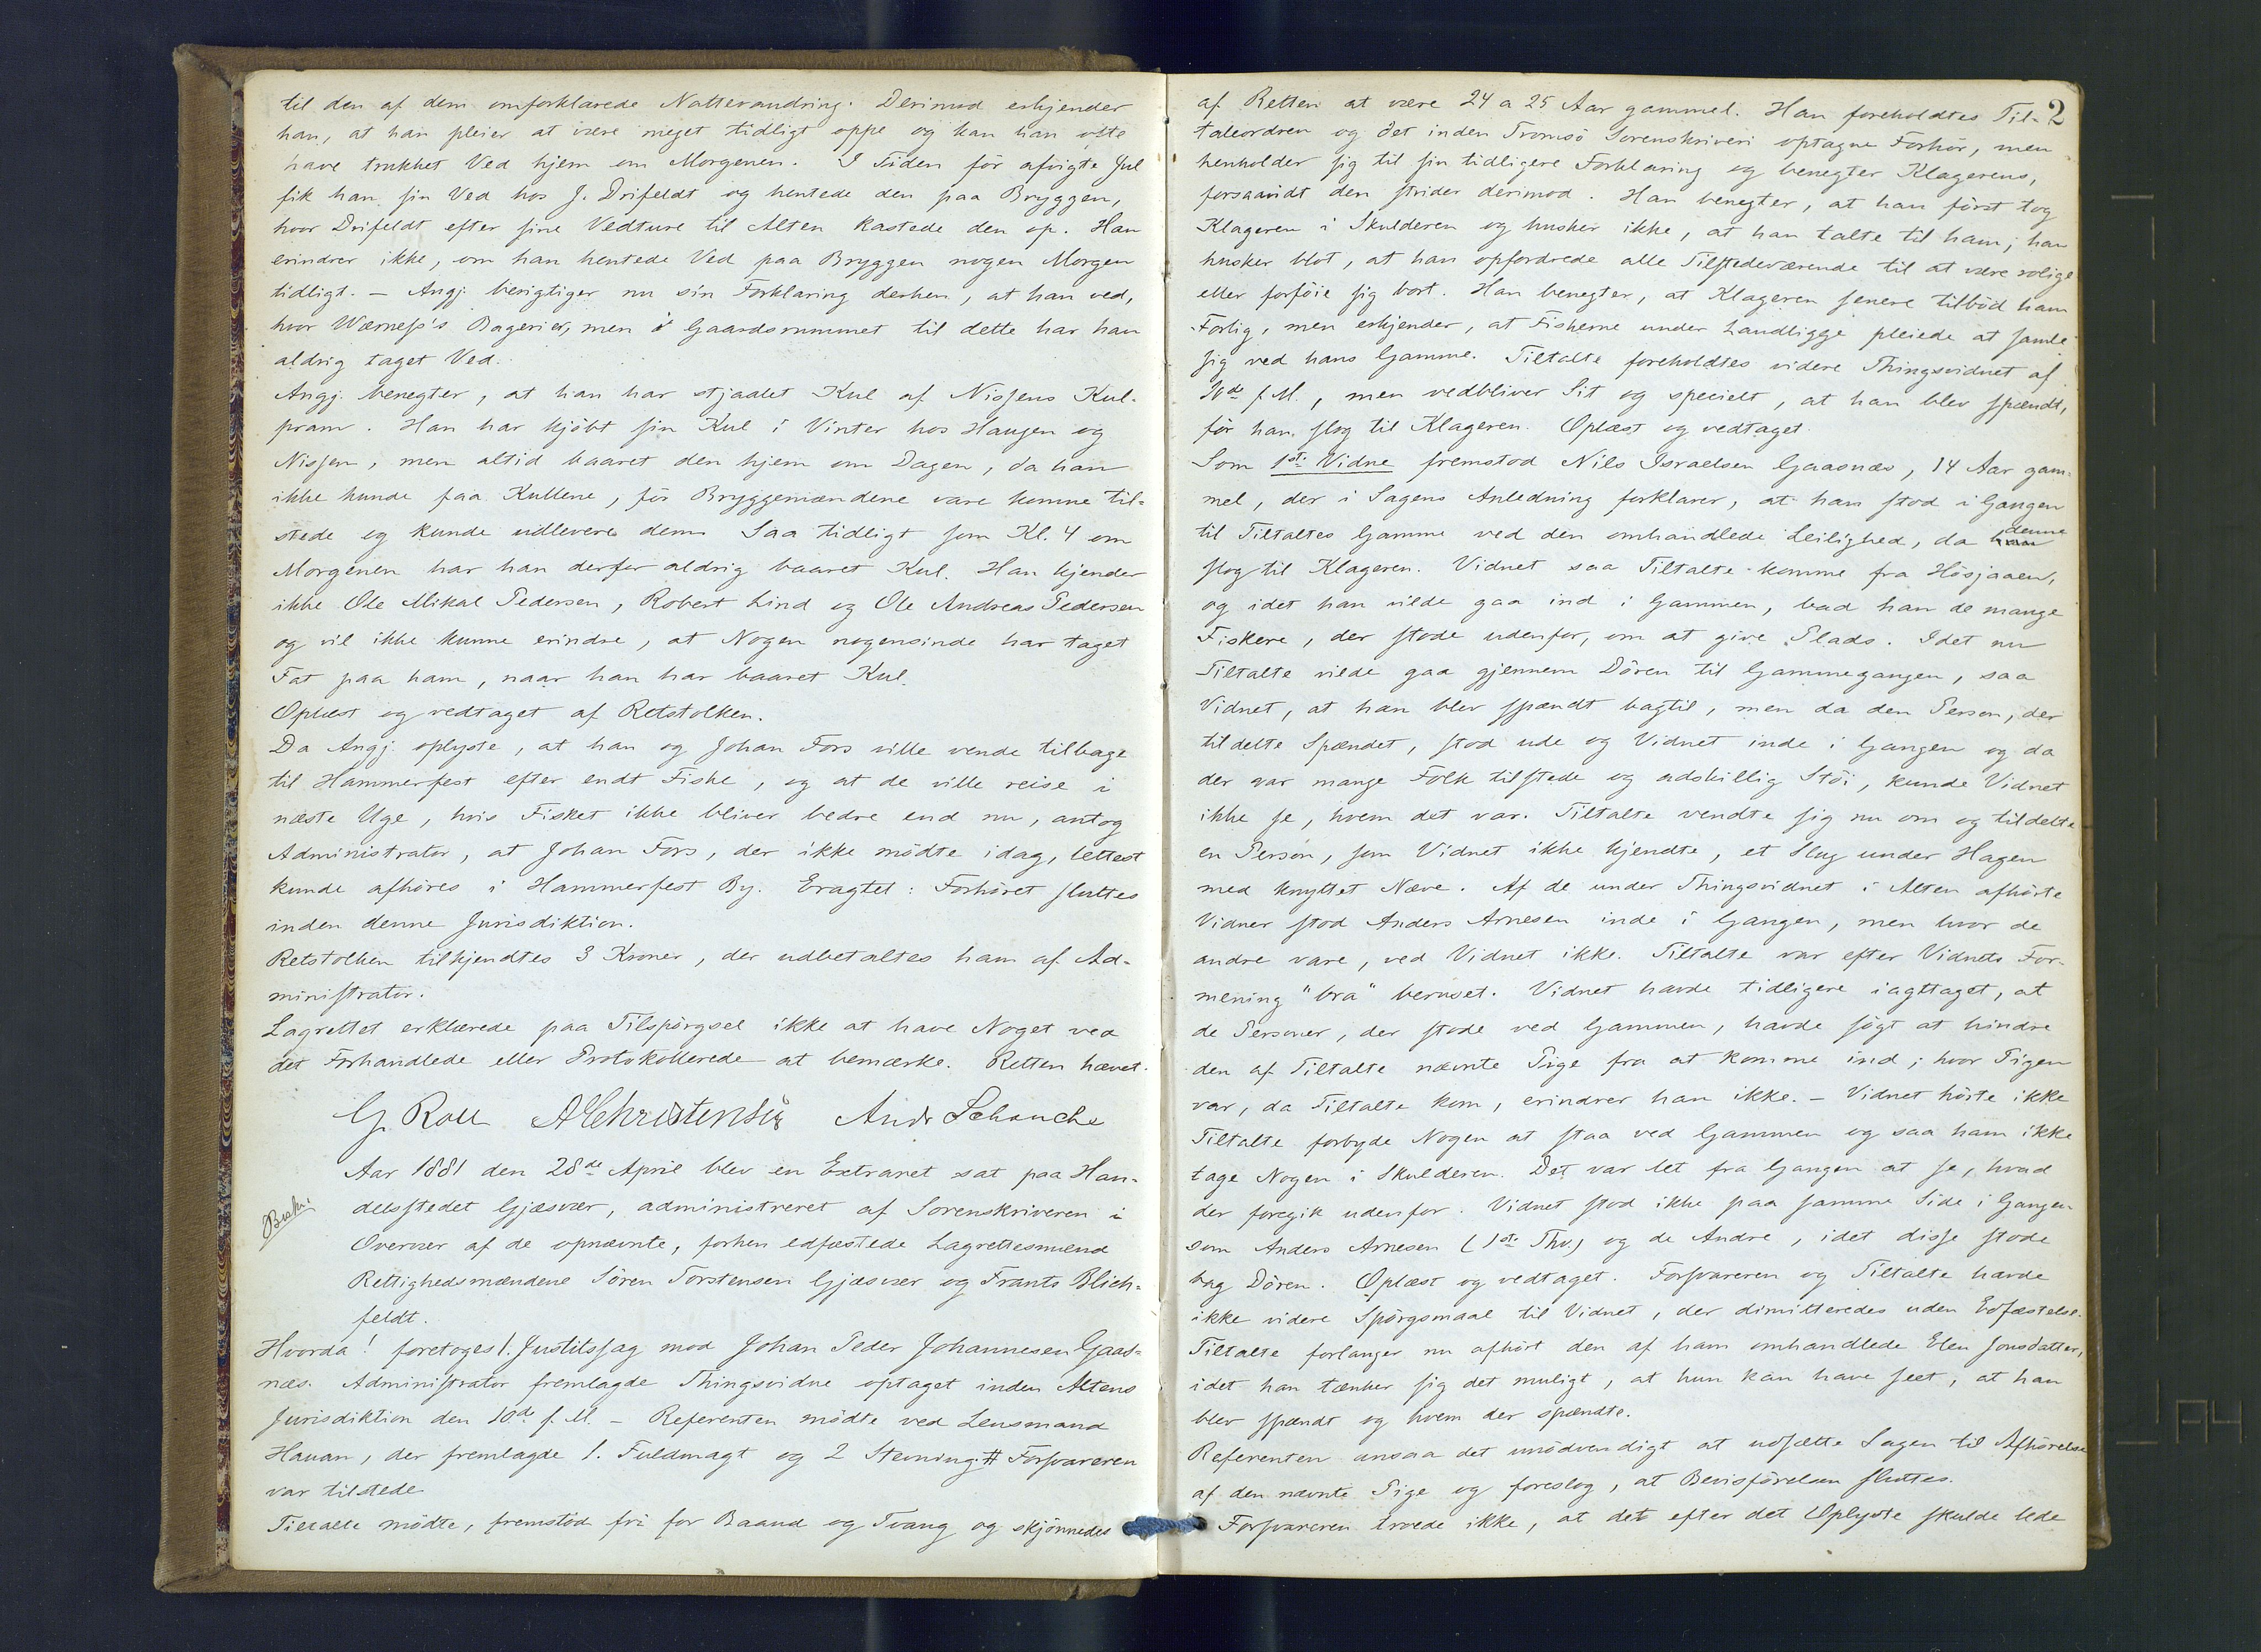 til den af dem omforklarede Nattevandring. Derimod erkjender
han, at han pleier at være meget tidligt oppe og kan han ofte
have trukket Ved hjem om Morgenen. I Tiden før afvigte Jul
fik han sin Ved hos J. Drifeldt og hentede den paa Bryggen,
hvor Drifeldt efter sine Vedture til Alten kastede den op. Han
erindrer ikke, om han hentede Ved paa Bryggen nogen Morgen
tidligt. — Angj. berigtiger nu sin Forklaring derhen, at han ved,
hvor Wærness's Bageri er, men i Gaardsrummet til dette har han
aldrig taget Ved.
Angj. benegter, at han har stjaalet Kul af Nissens Kul-
pram. Han har kjöbt sin Kul i Vinter hos Haugen og
Nissen, men altid baaret den hjem om Dagen, da han
ikke kunde faa Kullene, för Bryggemændene vare komne til-
stede og kunde udlevere dem. Saa tidligt som Kl. 4 om
Morgenen har han derfor aldrig baaret Kul. Han kjender
ikke Ole Mikal Pedersen, Robert Lind og Ole Andreas Pedersen
og vil ikke kunne erindre, at Nogen nogensinde har taget
Fat paa ham, naar han har baaret Kul.
Oplæst og vedtaget af Retstolken.
Da Angj. oplyste, at han og Johan Fors ville vende tilbage
til Hammerfest efter endt Fiske, og at de ville reise i
næste Uge, hvis Fisket ikke bliver bedre end nu, antog
Administrator, at Johan Fors, der ikke mödte idag, lettest
kunde afhöres i Hammerfest By. Eragtet: Forhöret sluttes
inden denne Jurisdiktion.
Retstolken tilkjendtes 3 Kroner, der udbetaltes ham af Ad-
ministrator.
Lagrettet erklærede paa Tilspörgsel ikke at have Noget ved
det Forhandlede eller Protokollerede at bemærke. Retten hævet.
G. Roll AChristensen Andr Schanche
Aar 1881 den 28de April blev en Extraret sat paa Han-
delsstedet Gjæsvær, administreret af Sorenskriveren i
Overvær af de opnævnte, forhen edfæstede Lagrettesmænd
Rettighedsmændene Sören Torstensen Gjæsvær og Frants Blich-
feldt.
Hvorda! foretoges 1. Justitssag mod Johan Peder Johannesen Gaas-
næs. Administrator fremlagde Thingsvidne optaget inden Altens
Jurisdiktion den 10de f. M. — Referenten mödte ved Lensmand
Hauan, der fremlagde 1. Fuldmagt og 2 Stevning. # Forsvareren
var tilstede
Tiltalte mödte, fremstod fri for Baand og Tvang og skjönnedes
2
af Retten at være 24 a 25 Aar gammel. Han foreholdtes Til-
taleordren og det inden Tromsö Sorenskriveri optagne Forhör, men
henholder sig til sin tidligere Forklaring og benegter Klagerens,
forsaavidt den strider derimod. Han benegter, at han först tog
Klageren i Skulderen og husker ikke, at han talte til ham; han
husker blot, at han opfordrede alle Tilstedeværende til at være rolige
eller forföie sig bort. Han benegter, at Klageren senere tilböd ham
Forlig, men erkjender, at Fiskerne under Landligge pleiede at samle
sig ved hans Gamme. Tiltalte foreholdtes videre Thingsvidnet af
10de f. M., men vedbliver Sit og specielt, at han blev spændt,
för han slog til Klageren. Oplæst og vedtaget.
Som 1ste Vidne fremstod Nils Israelsen Gaasnæs, 14 Aar gam-
mel, der i Sagens Anledning forklarer, at han stod i Gangen
til Tiltaltes Gamme ved den omhandlede Leilighed, da han denne
slog til Klageren. Vidnet saa Tiltalte komme fra Hösjaaen,
og idet han vilde gaa ind i Gammen, bad han de mange
Fiskere, der stode udenfor, om at give Plads. Idet nu
Tiltalte vilde gaa gjennem Dören til Gammegangen, saa
Vidnet, at han blev spændt bagtil, men da den Person, der
tildelte Spændet, stod ude og Vidnet inde i Gangen og da
der var mange Folk tilstede og adskillig Stöi, kunde Vidnet
ikke se, hvem det var. Tiltalte vendte sig nu om og tildelte
en Person, som Vidnet ikke kjendte, et Slag under Hagen
med knyttet Næve. Af de under Thingsvidnet i Alten afhörte
Vidner stod Anders Arnesen inde i Gangen, men hvor de
andre vare, ved Vidnet ikke. Tiltalte var efter Vidnets For-
mening "bra" beruset. Vidnet havde tidligere iagttaget, at
de Personer, der stode ved Gammen, havde sögt at hindre
den af Tiltalte nævnte Pige fra at komme ind; hvor Pigen
var, da Tiltalte kom, erindrer han ikke. — Vidnet hörte ikke
Tiltalte forbyde Nogen at staa ved Gammen og saa ham ikke
tage Nogen i Skulderen. Det var let fra Gangen at se, hvad
der foregik udenfor. Vidnet stod ikke paa samme Side i Gangen
som Anders Arnesen (1ste Thv.) og de Andre, idet disse stode
bag Dören. Oplæst og vedtaget. Forsvareren og Tiltalte havde
ikke videre Spörgsmaal til Vidnet, der dimitteredes uden Edfæstelse.
Tiltalte forlanger nu afhört den af ham omhandlede Elen Jonsdatter,
idet han tænker sig det muligt, at hun kan have seet, at han
blev spændt og hvem der spændte.
Referenten ansaa det unödvendigt at udsætte Sagen til Afhörelse
af den nævnte Pige og foreslog, at Bevisförelsen sluttes.
Forsvareren troede ikke, at det efter det Oplyste skulde lede